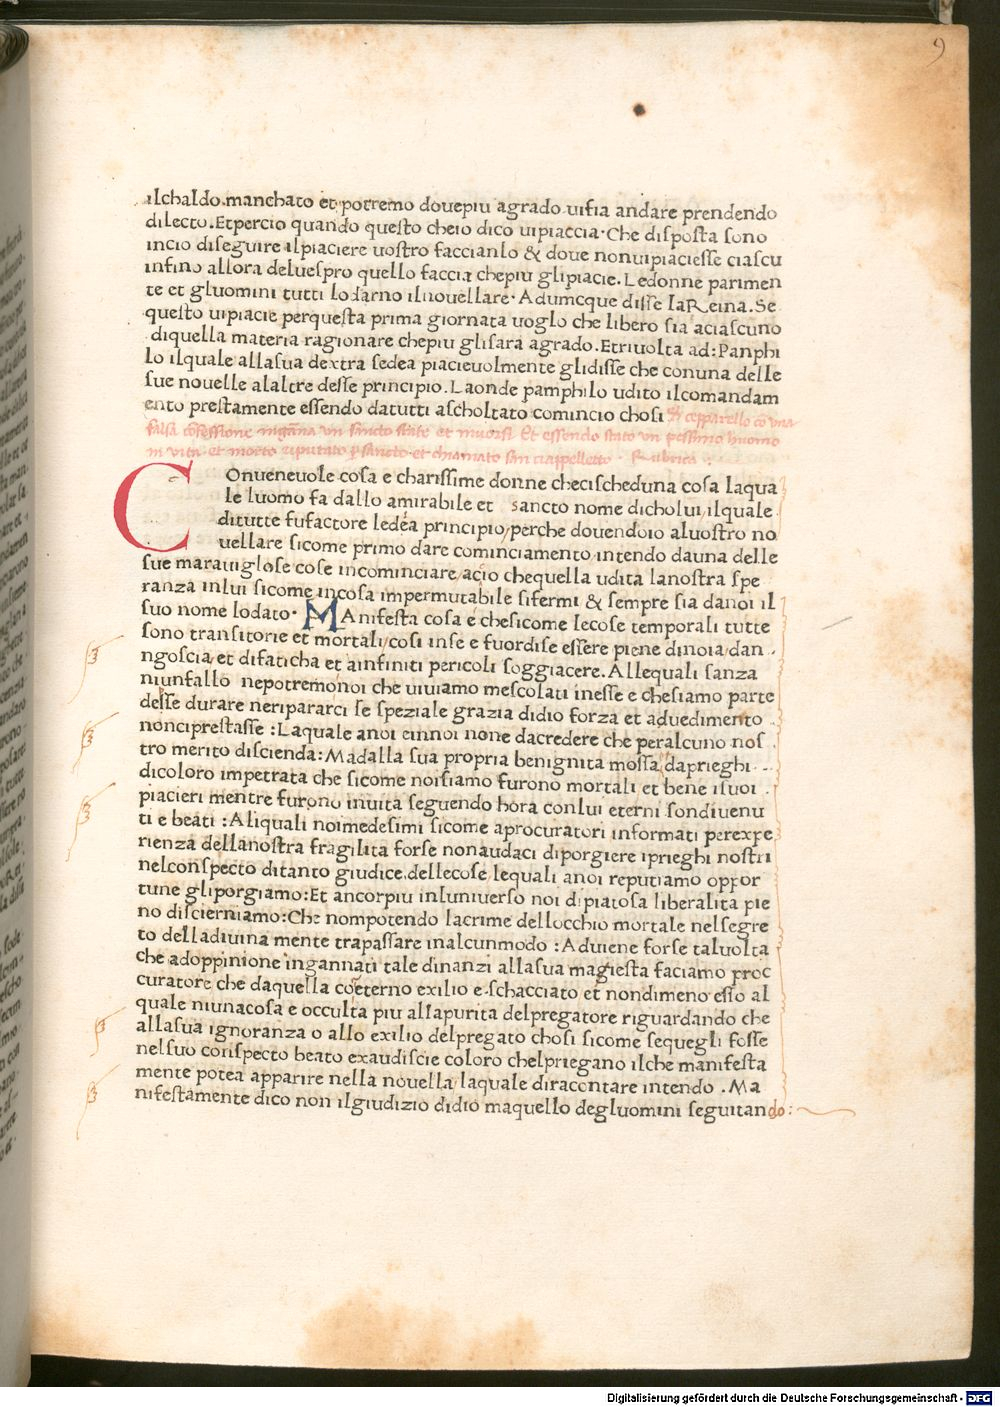 9
ilchaldo.manchato et potremo dovepiu agrado.uifia andare prendendo
dilecto.Etpercio quando questo cheio dico uipiaccia.Che disposta sono
incio diseguire ilpiaciere uostro faccianlo & doue nonuipiaciesse ciascu
infino allora deluespro quello faccia chepiu glipiacie.Ledonne parimen
te et gluomini tutti lodarno ilnouellare.Adumcque disse laReina.Se
questo uipiacie perquesta prima giornata uoglo che libero sia aciascuno
diquella materia ragionare chepiu glisara agrado.Etriuolta ad:Panphi
lo ilquale allasua dextra sedea piacieuolmente glidisse che conuna delle
sue nouelle alaltre desse principio.Laonde pamphilo udito ilcomandam
ento prestamente essendo datutti ascholtato comincio chosi cepparello cō una
falsa cōfessione ingāna un sancto frate et muorsi Et essendo stato un pessimo huomo
in vita et morto e riputato p sancto et chiamato san ciappelletto. Rubrica:
COnueneuole cosa e charissime donne checischeduna cosa laqua
le luomo fa dallo amirabile et sancto nome dicholui, ilquale
ditutte fufactore ledéa principio/perche douendoio aluostro no
uellare sicome primo dare cominciamento/intendo dauna delle
sue marauiglose cose incominciare/acio chequella udita lanostra spe
ranza inlui sicome incosa impermutabile sifermi & sempre sia danoi il
suo nome lodato. MAnifesta cosa e chesicome lecose temporali tutte
sono transitorie et mortali/cosi inse e fuordise essere piene dinoia/dan
ngoscia/et difaticha et ainfiniti pericoli soggiacere.Allequali sanza
niunfallo nepotremo/noi che uiuiamo mescolati inesse e chesiamo parte
desse durare neripararci se speziale grazia didio forza et aduedimento
nonciprestasse:Laquale anoi einnoi none dacredere che peralcuno nos
tro merito discienda:Madalla sua propria benignita mossa/daprieghi
dicoloro impetrata che sicome noisiamo furono mortali et bene isuoi
piacieri mentre furono inuita seguendo hora conlui eterni sondiuenu
ti e beati:Aliquali noimedesimi sicome aprocuratori informati perexpe
rienza dellanostra fragilita forse nonaudaci diporgiere iprieghi nostri
nelconspecto ditanto giudice.dellecose lequali anoi reputiamo oppor
tune gliporgiamo:Et ancorpiu inluniuerso noi dipiatosa liberalita pie
no discierniamo:Che nompotendo lacrime dellocchio mortale nelsegre
to delladiuina mente trapassare inalcunmodo:Aduiene forse taluolta
che adoppinione ingannati tale dinanzi allasua magiesta faciamo proc
curatore che daquella coeterno exilio e schacciato et nondimeno esso al
quale niunacosa e occulta piu allapurita delpregatore riguardando che
allasua ignoranza o allo exilio delpregato chosi sicome sequegli fosse
nelsuo conspecto beato exaudiscie coloro chelpriegano ilche manifesta
mente potea apparire nella nouella/laquale diracontare intendo.Ma
nifestamente dico non ilgiudizio didio maquello degluomini seguitando:
Digitalisierung gefördert durch die Deutsche Forschungsgemeinschaft - DFG